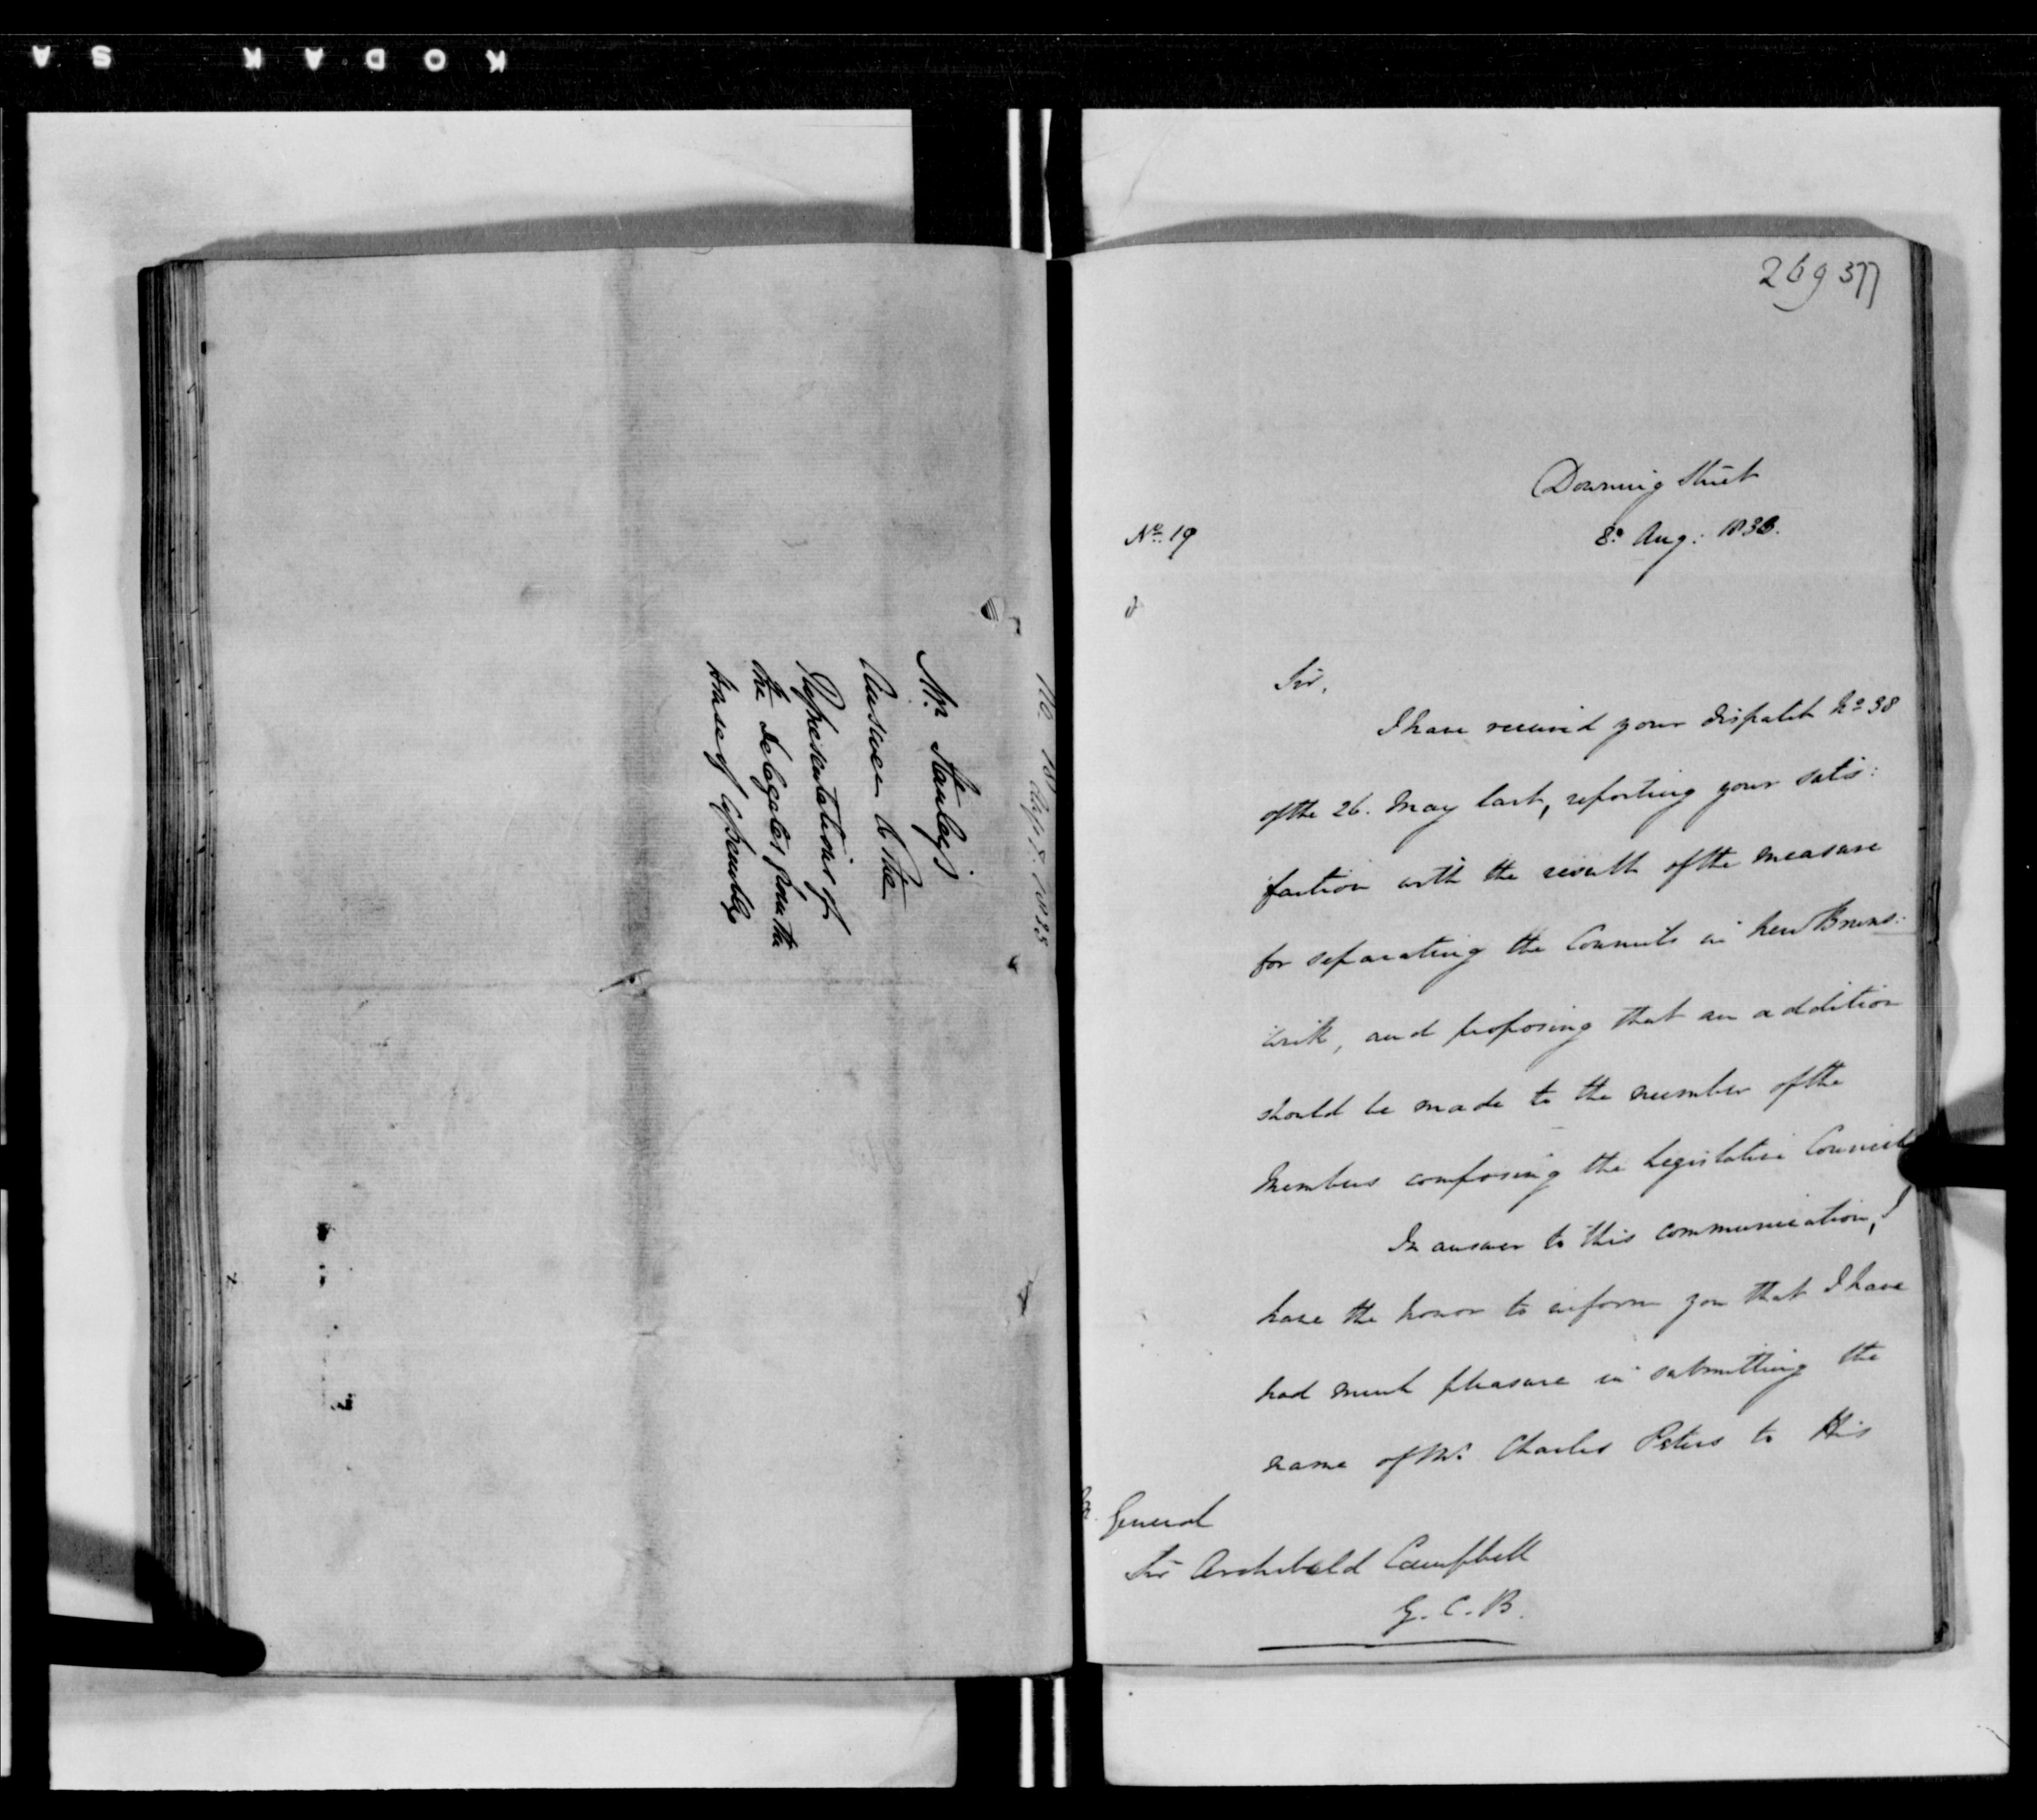 KODAK SA
Mr. Stanley's
Answer to the
Representations of
the Delegates from the
House of Assembly
269 377
Downing Street
8. Aug: 1833.
No. 19
Sir,
I have received your dispatch No 38
of the 26. May last, reporting your satis:
:faction with the result of the measure
for separating the Councils in New Bruns:
:wick, and proposing that an addition
should be made to the number of the
Members composing the Legislative Council
In answer to this communication, I
have the honor to inform you that I have
had much pleasure in submitting the
name of Mr. Charles Peters to His
General
Sir Archibald Campbell
G. C. B.